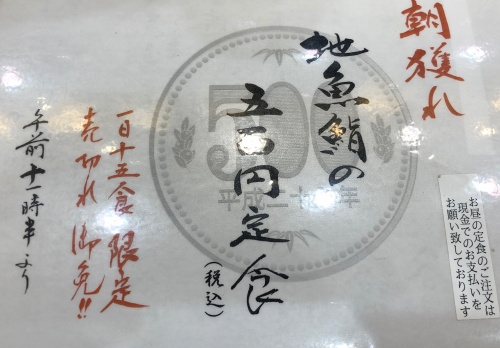 朝獲れ
地魚絹の
五百円定食
(税込)
一日十五食限定
売切れ御免!!
午前十一時半より
お昼の定食のご注文は
現金でのお支払いを
お願い致しております
500
平成二 年